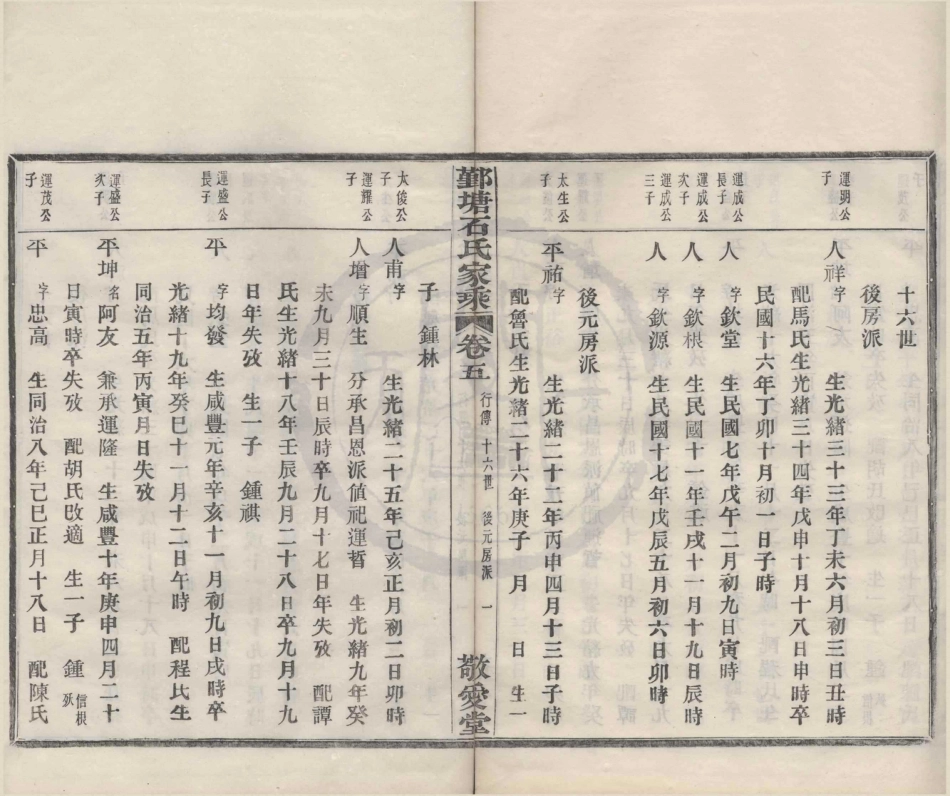 十六世
後房派
運明公子
人祥字 生光緒三十三年丁未六月初三日丑時
配馬氏生光緒三十四年戊申十月十八日申時卒
民國十六年丁卯十月初一日子時
運成公長子
人 字欽堂 生民國七年戊午二月初九日寅時
運成公次子
人 字欽根 生民國十一年壬戌十一月十九日辰時
運成公三子
人 字欽源 生民國十七年戊辰五月初六日卯時
後元房派
太生公子
平祐字 生光緒二十二年丙申四月十三日子時
配魯氏生光緒二十六年庚子 月 日 生一
鄞塘石氏家乘 卷五 行傳 十六世 後元房派 一 敬愛堂
子 鍾林
大俊公子
人甫字 生光緒二十五年己亥正月初二日卯時
運耀公子
人增字順生 分承昌恩派値祀運晢 生光緒九年癸
未九月三十日辰時卒九月十七日年失攷 配譚
氏生光緒十八年壬辰九月二十八日卒九月十九
日年失攷 生一子 鍾祺
運盛公長子
平 字均發 生咸豐元年辛亥十一月初九日戌時卒
光緒十九年癸巳十一月十二日午時 配程氏生
同治五年丙寅月日失攷
運盛公次子
平坤名阿友 兼承運隆 生咸豐十年庚申四月二十
日寅時卒失攷 配胡氏改適 生一子 鍾信根
運茂公子
平 字忠高 生同治八年己巳正月十八日 配陳氏